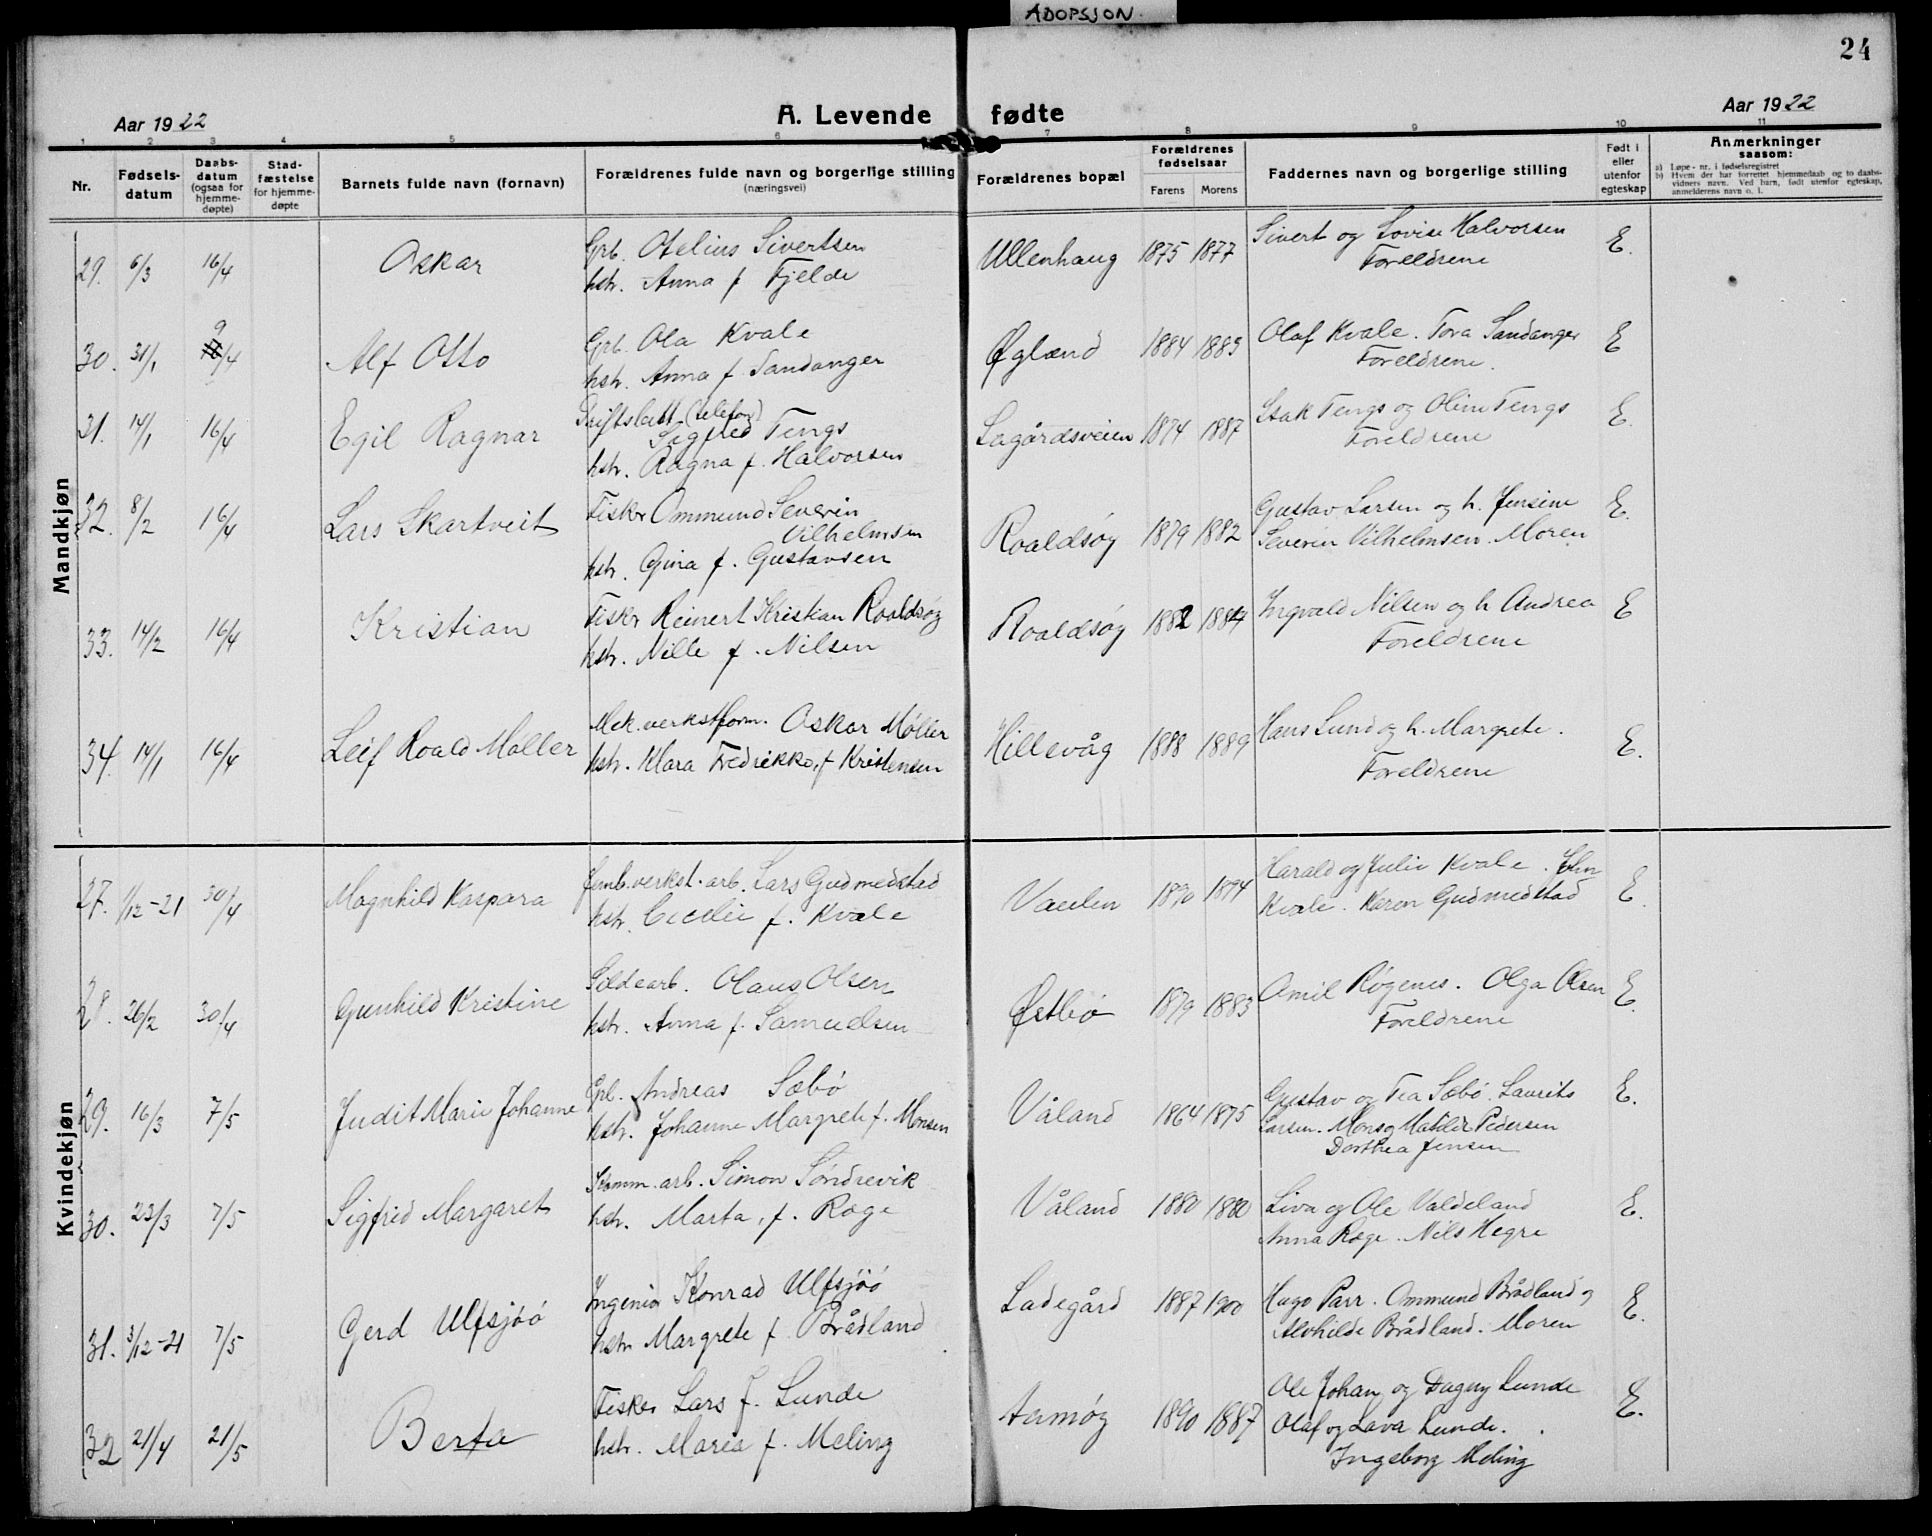 ADOPSJON.
24
Aar 1922
A. Levende fødte
Aar 1922
1 2 3 4 5 6 7 8 9 10 11
Nr.
Fødsels-
datum
Daabs-
datum
(ogsaa for
hjemme-
døpte)
Stad-
fæstelse
for hjemme-
døpte
Barnets fulde navn (fornavn)
Forældrenes fulde navn og borgerlige stilling
(næringsvei)
Forældrenes bopæl
Forældrenes
fødselsaar
Farens Morens
Faddernes navn og borgerlige stilling
Født i
eller
utenfor
egteskap
Anmerkninger
saasom:
a) Løpe-nr. i fødselsregistret
b) Hvem der har forrettet hjemmedaab og to daabs-
vidners navn. Ved barn, født utenfor egteskap,
anmelderens navn o. l.
Mandkjøn
29. 6/3 16/4 Oskar
Grb. Otelius Sivertsen
hstr. Anna f Fjelde
Ullenhaug 1875 1877
Sivert og Lovise Halvorsen
Foreldrene
E.
30. 31/1 9/4 Alf Otto
Grb. Ola Kvale
hstr. Anna f. Sandanger
Øglænd 1884 1885
Olaf Kvale. Tora Sandanger
Foreldrene.
E
31. 14/1 16/4 Egil Ragnar
(telefon)
Sigfred Tengs
hstr. Ragna f. Halvorsen
Lagårdsveien 1874 1887
Isak Tengs og Oline Tengs
Foreldrene
E.
32. 8/2 16/4 Lars Skartveit
Fisker Ommund Severin
Vilhelmsen
hstr. Gina f. Gustavsen
Roaldsøy 1879 1882
Gustav Larsen og h. Jensine
Severin Vilhelmsen. Moren
E.
33. 14/2 16/4 Kristian
Fisker Reinert Kristian Roaldsøy
hstr. Nille f. Nilsen
Roaldsøy 1882 1884
Ingvald Nilsen og h Andrea
Foreldrene
E
34. 14/1 16/4 Leif Roald Møller
Mek. verkstform. Oskar Møller
hstr. Klara Fredrikke, f Kristensen
Hillevåg 1888 1889
Hans Lund og h. Margrete.
Foreldrene
E.
Kvindekjøn
27. 1/12-21 30/4 Magnhild Kaspara
Jernb. verkst. arb. Lars Gudmedstad
hstr. Cecilie f. Kvale
Vaulen 1890 1894
Harald og Julie Kvale. John
Kvale. Karen Gudmedstad
E.
28. 26/2 30/4 Gunhild Kristine
Sildearb. Olaus Olsen
hstr. Anna f. Samuelsen
Østbø 1879 1883
Amil Røgenes. Olga Olsen
Foreldrene
E.
29. 16/3 7/5 Judit Marie Johanne
Grb. Andreas Sæbø
hstr. Johanne Margrete f. Monsen
Våland 1864 1875
Gustav og Tea Sæbø. Laurits
Larsen. Mons og Matilde Pedersen
Dorthea Jensen
E.
30. 23/3 7/5 Sigfred Margaret
Komm. arb. Simon Søndrevik
hstr. Marta, f. Rage
Våland 1880 1880
Liva og Ole Valdeland
Anna Rage. Nils Hegre
E.
31. 3/12-21 7/5 Gerd Ulfsjøö
Ingeniør Konrad Ulfsjøö
hstr Margrete f. Brådland
Ladegård 1887 1900
Hugo Parr. Ommund Brådland og
Alvhilde Brådland. Moren
E.
32 21/4 21/5 Berta
Fisker Lars J. Lunde
hstr. Maria f. Meling
Aamøy 1890 1887
Ole Johan og Dagny Lunde
Olaf og Lava Lunde.
Ingeborg Meling
E.